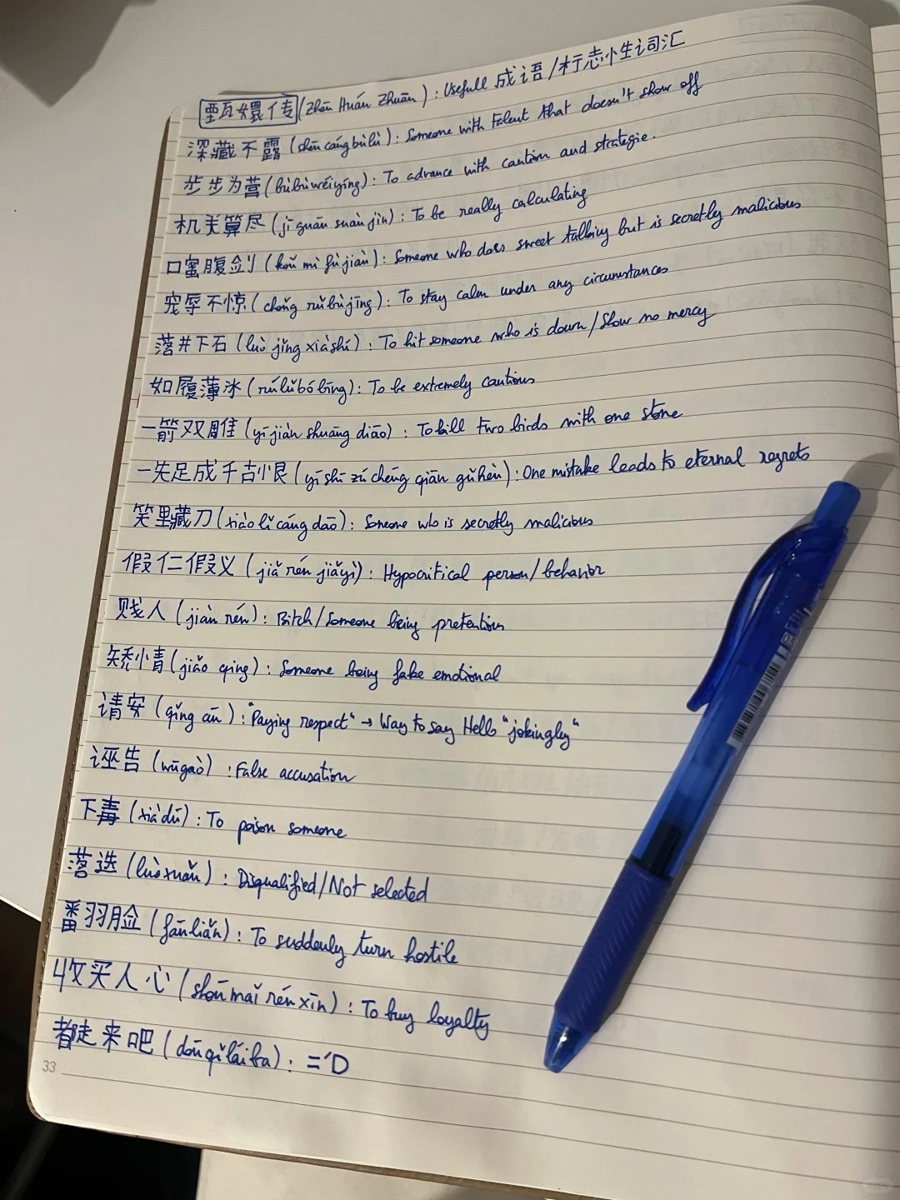 甄嬛传 (Zhēn Huán Zhuàn) : Usefull 成语/标志性词汇
深藏不露 (shēn cáng bù lù) : Someone with talent that doesn't show off
步步为营 (bù bù wéi yíng) : To advance with caution and strategie.
机关算尽 (jī guān suàn jìn) : To be really calculating
口蜜腹剑 (kǒu mì fù jiàn) : Someone who does sweet talking but is secretly malicious
宠辱不惊 (chǒng rǔ bù jīng) : To stay calm under any circumstances
落井下石 (luò jǐng xià shí) : To hit someone who is down/Show no mercy
如履薄冰 (rú lǚ bó bīng) : To be extremely cautious
一箭双雕 (yī jiàn shuāng diāo) : To kill two birds with one stone
一失足成千古恨 (yī shī zú chéng qiān gǔ hèn) : One mistake leads to eternal regrets
笑里藏刀 (xiào lǐ cáng dāo) : Someone who is secretly malicious
假仁假义 (jiǎ rén jiǎ yì) : Hypocritical person/behavior
贱人 (jiàn rén) : Bitch/Someone being pretentious
矫情 (jiǎo qing) : Someone being fake emotional
请安 (qǐng ān) : "Paying respect" → Way to say Hello "jokingly"
诬告 (wūgào) : False accusation
下毒 (xià dú) : To poison someone
落选 (luò xuǎn) : Disqualified/Not selected
翻脸 (fān liǎn) : To suddenly turn hostile
收买人心 (shōu mǎi rén xīn) : To buy loyalty
都起来吧 (dōu qǐ lái ba) : ='D
33